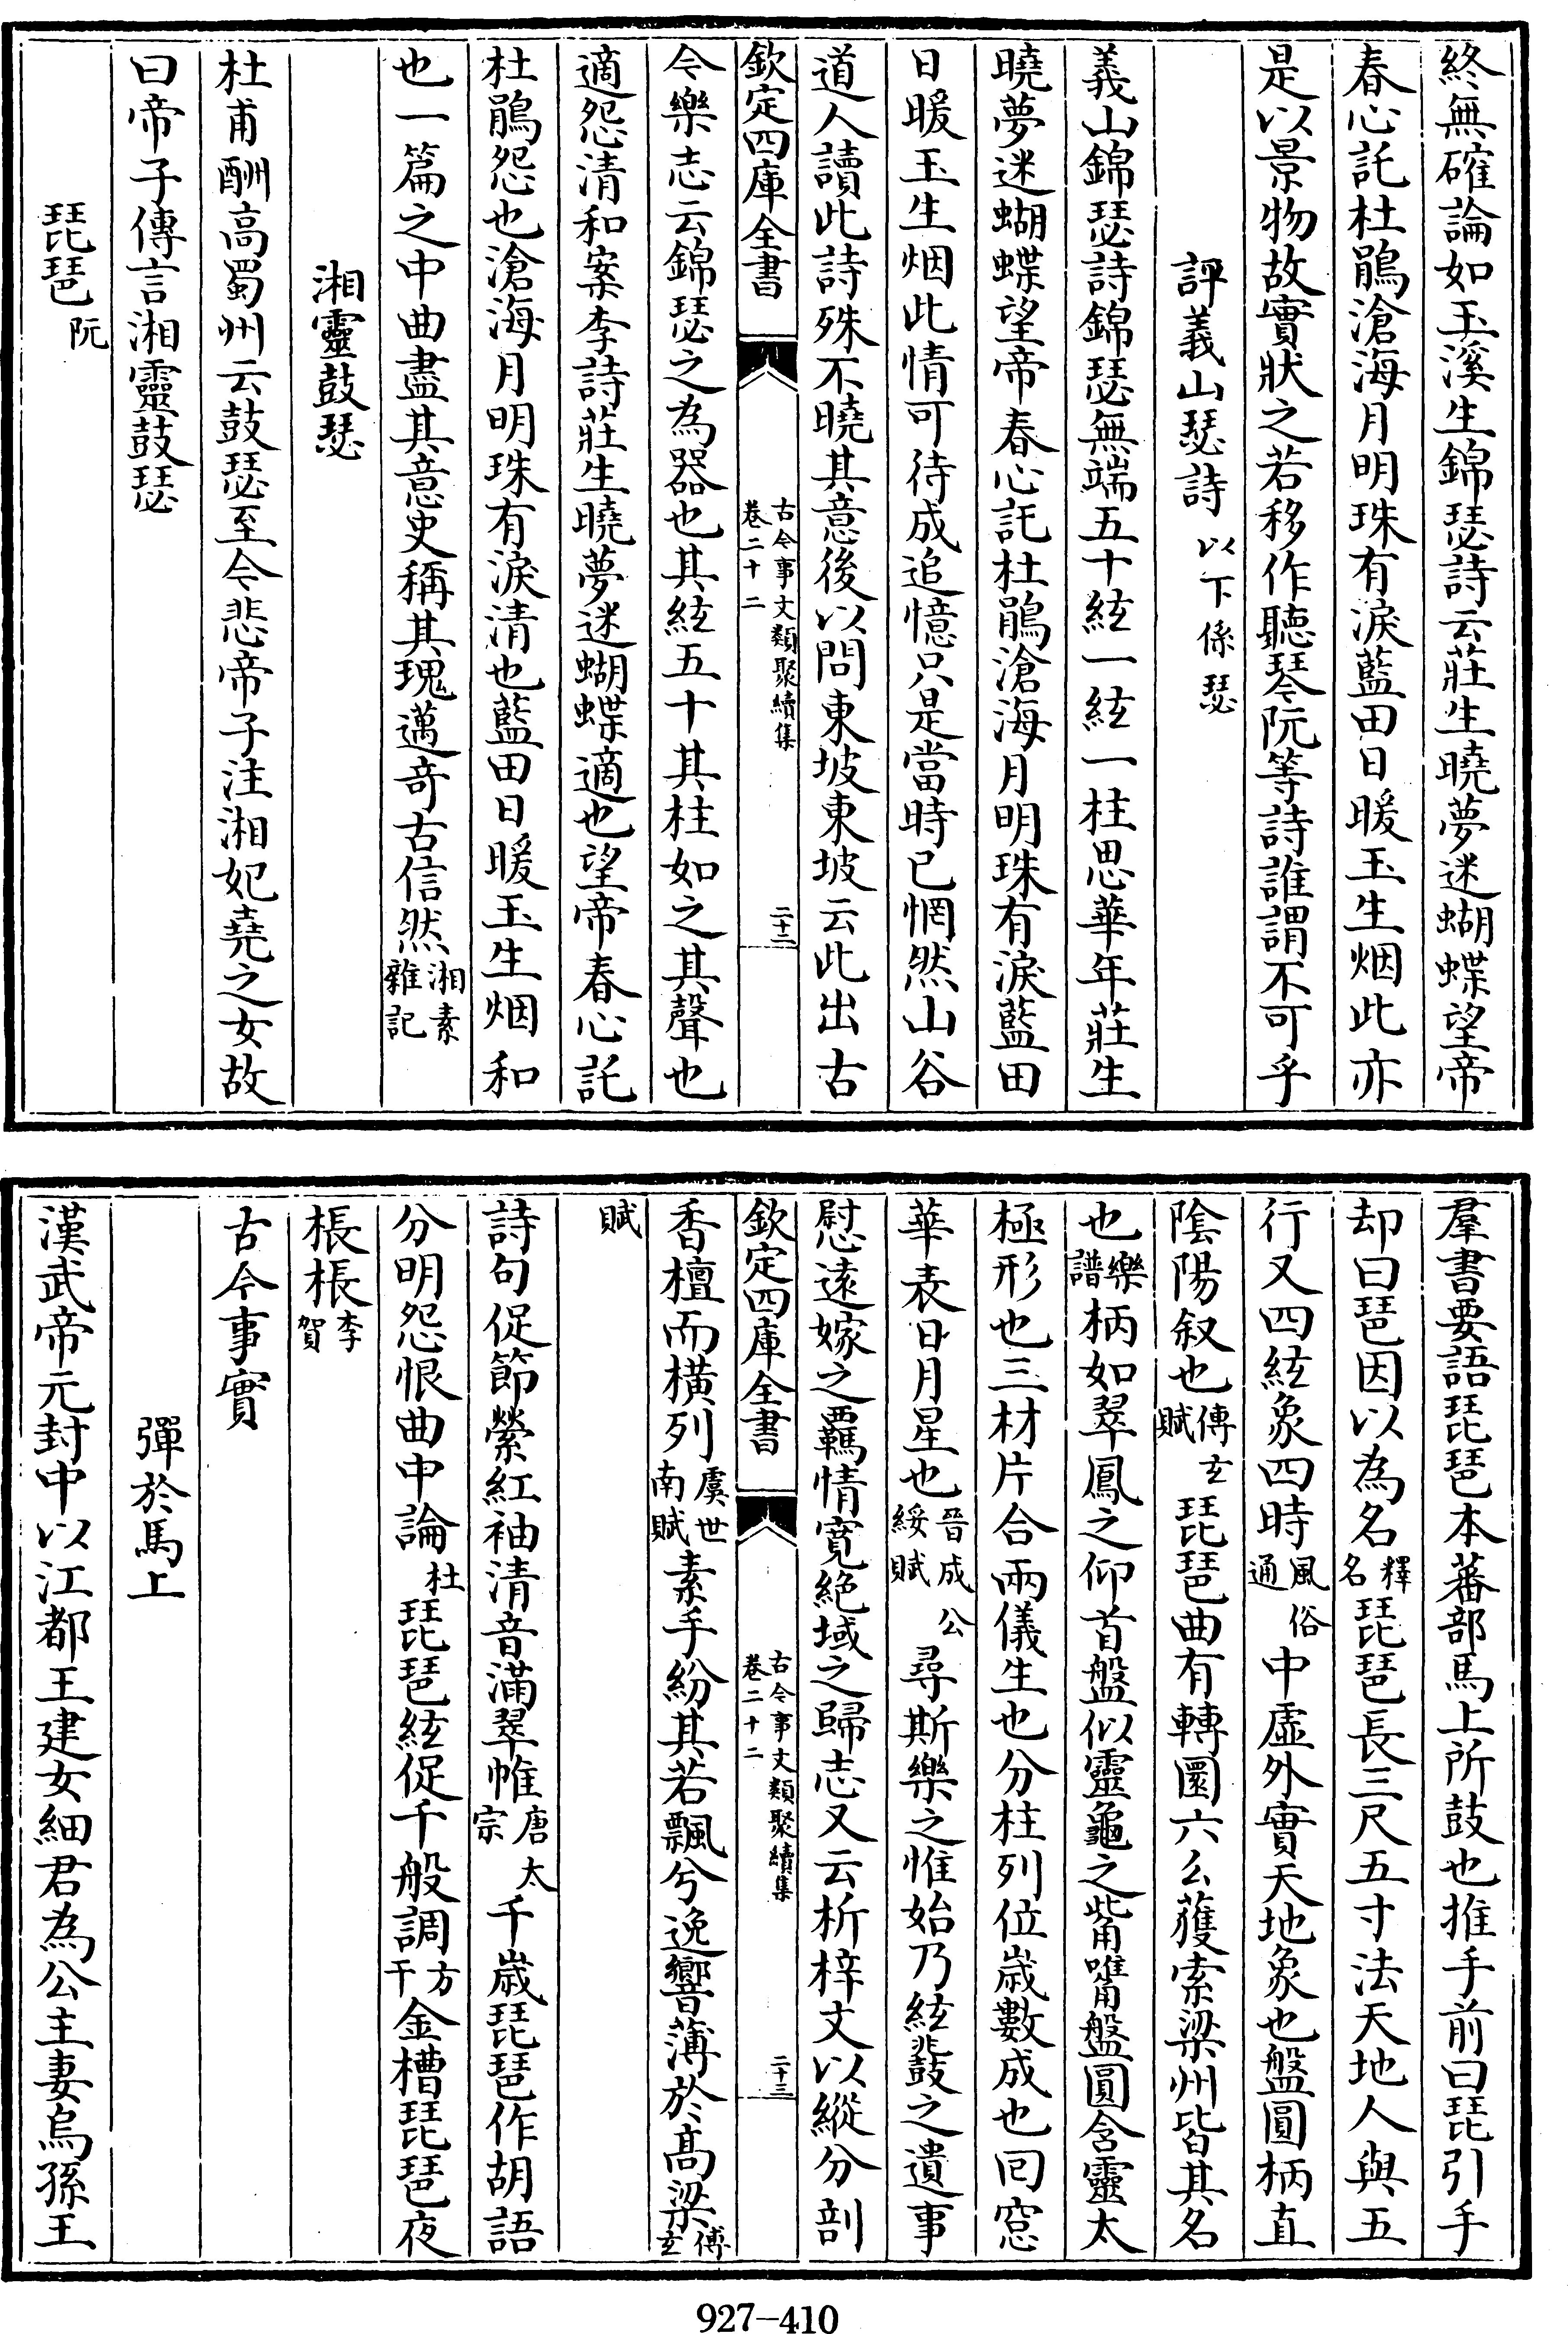 終無確論如玉溪生錦瑟詩云莊生曉夢迷蝴蝶望帝
春心託杜鵑滄海月明珠有淚藍田日暖玉生烟此亦
是以景物故實狀之若移作聽琴阮等詩誰謂不可乎
評義山瑟詩以下係瑟
義山錦瑟詩錦瑟無端五十絃一絃一柱思華年莊生
曉夢迷蝴蝶望帝春心託杜鵑滄海月明珠有淚藍田
日暖玉生烟此情可待成追憶只是當時已惘然山谷
道人讀此詩殊不曉其意後以問東坡東坡云此出古
欽定四庫全書 古今事文類聚續集 卷二十二 二十二
今樂志云錦瑟之為器也其絃五十其柱如之其聲也
適怨清和案李詩莊生曉夢迷蝴蝶適也望帝春心託
杜鵑怨也滄海月明珠有淚清也藍田日暖玉生烟和
也一篇之中曲盡其意史稱其瑰邁奇古信然湘素雜記
湘靈鼓瑟
杜甫酬高蜀州云鼓瑟至今悲帝子注湘妃堯之女故
曰帝子傳言湘靈鼓瑟
琵琶阮
羣書要語琵琶本蕃部馬上所鼓也推手前曰琵引手
却曰琶因以為名釋名琵琶長三尺五寸法天地人與五
行又四絃象四時風俗通中虛外實天地象也盤圓柄直
陰陽叙也傅玄賦琵琶曲有轉圜六么蒦索梁州皆其名
也樂譜柄如翠鳳之仰首盤似靈龜之觜嘴盤圓含靈太
極形也三材片合兩儀生也分柱列位歲數成也回窓
華表日月星也晉成公綏賦尋斯樂之惟始乃絃鼗之遺事
慰遠嫁之羈情寛絶域之歸志又云析梓文以縱分剖
欽定四庫全書 古今事文類聚續集 卷二十二 二十三
香檀而横列虞世南賦素手紛其若飄兮逸響薄於高梁傅玄
賦
詩句促節縈紅袖清音滿翠帷唐太宗千歲琵琶作胡語
分明怨恨曲中論杜琵琶絃促千般調方干金槽琵琶夜
棖棖李賀
古今事實
彈於馬上
漢武帝元封中以江都王建女細君為公主妻烏孫王
927-410